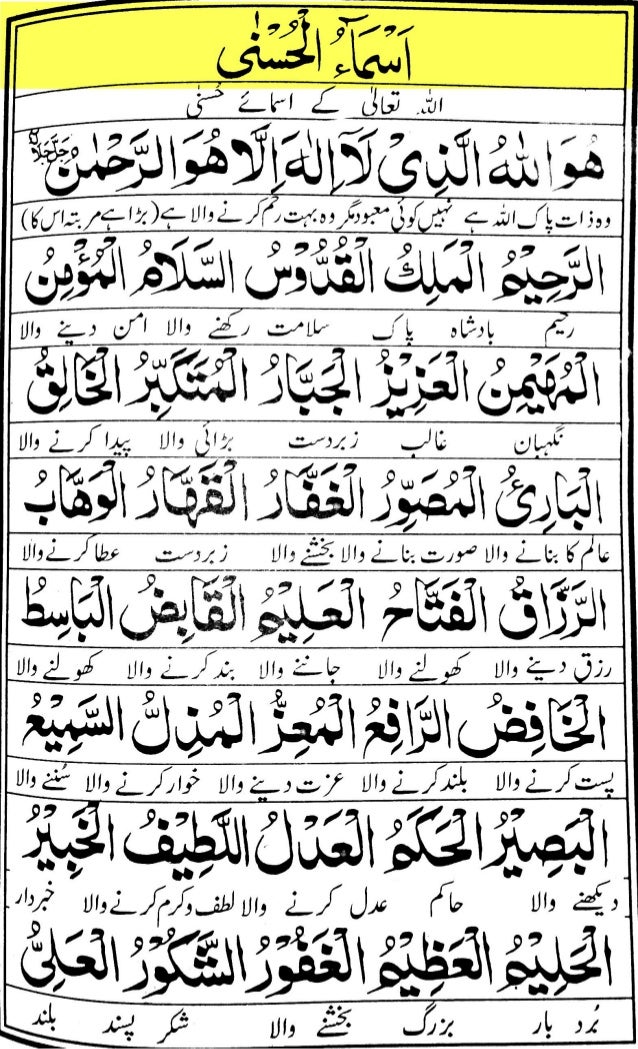 اَسْمَآءُ الْحُسْنٰى
اللہ تعالیٰ کے اسمائے حُسنیٰ
هُوَ اللهُ الَّذِىْ لَآ اِلٰهَ اِلَّا هُوَ الرَّحْمٰنُ جَلَّ جَلَالُهٗ
وہ ذات پاک اللہ ہے نہیں کوئی معبود مگر وہ بہت رحم کرنے والا ہے (بڑا ہے مرتبہ اس کا)
الرَّحِيْمُ الْمَلِكُ الْقُدُّوْسُ السَّلَامُ الْمُؤْمِنُ
رحیم بادشاہ پاک سلامت رکھنے والا امن دینے والا
الْمُهَيْمِنُ الْعَزِيْزُ الْجَبَّارُ الْمُتَكَبِّرُ الْخَالِقُ
نگہبان غالب زبردست بڑائی والا پیدا کرنے والا
الْبَارِئُ الْمُصَوِّرُ الْغَفَّارُ الْقَهَّارُ الْوَهَّابُ
عالم کا بنانے والا صورت بنانے والا بخشنے والا زبردست عطا کرنے والا
الرَّزَّاقُ الْفَتَّاحُ الْعَلِيْمُ الْقَابِضُ الْبَاسِطُ
رزق دینے والا کھولنے والا جاننے والا بند کرنے والا کھولنے والا
الْخَافِضُ الرَّافِعُ الْمُعِزُّ الْمُذِلُّ السَّمِيْعُ
پست کرنے والا بلند کرنے والا عزت دینے والا خوار کرنے والا سُننے والا
الْبَصِيْرُ الْحَكَمُ الْعَدْلُ اللَّطِيْفُ الْخَبِيْرُ
دیکھنے والا حاکم عدل کرنے والا لطف و کرم کرنے والا خبردار
الْحَلِيْمُ الْعَظِيْمُ الْغَفُوْرُ الشَّكُوْرُ الْعَلِىُّ
بُرد بار بزرگ بخشنے والا شکر پسند بلند